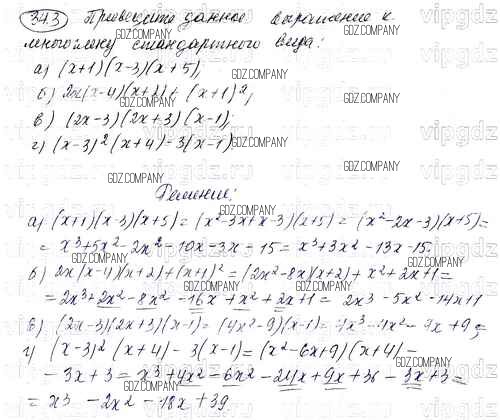 343 Приведите данное выражение к
многочлену стандартного вида:
а) (x+1)(x-3)(x+5);
б) 2x(x-4)(x+2) + (x+1)²;
в) (2x-3)(2x+3)(x-1);
г) (x-3)²(x+4)-3(x-1)
Решение:
а) (x+1)(x-3)(x+5) = (x²-3x+x-3)(x+5) = (x²-2x-3)(x+5)=
= x³+5x²-2x²-10x-3x-15 = x³+3x²-13x-15.
б) 2x(x-4)(x+2)+(x+1)² = (2x²-8x)(x+2)+x²+2x+1=
= 2x³+2x²-8x²-16x+x²+2x+1 = 2x³-5x²-14x+1
в) (2x-3)(2x+3)(x-1) = (4x²-9)(x-1) = 4x³-4x²-9x+9;
г) (x-3)²(x+4)-3(x-1) = (x²-6x+9)(x+4)-
-3x+3 = x³+4x²-6x²-24x+9x+36-3x+3=
= x³-2x²-18x+39
GDZ.COMPANY
vipgdz.ru